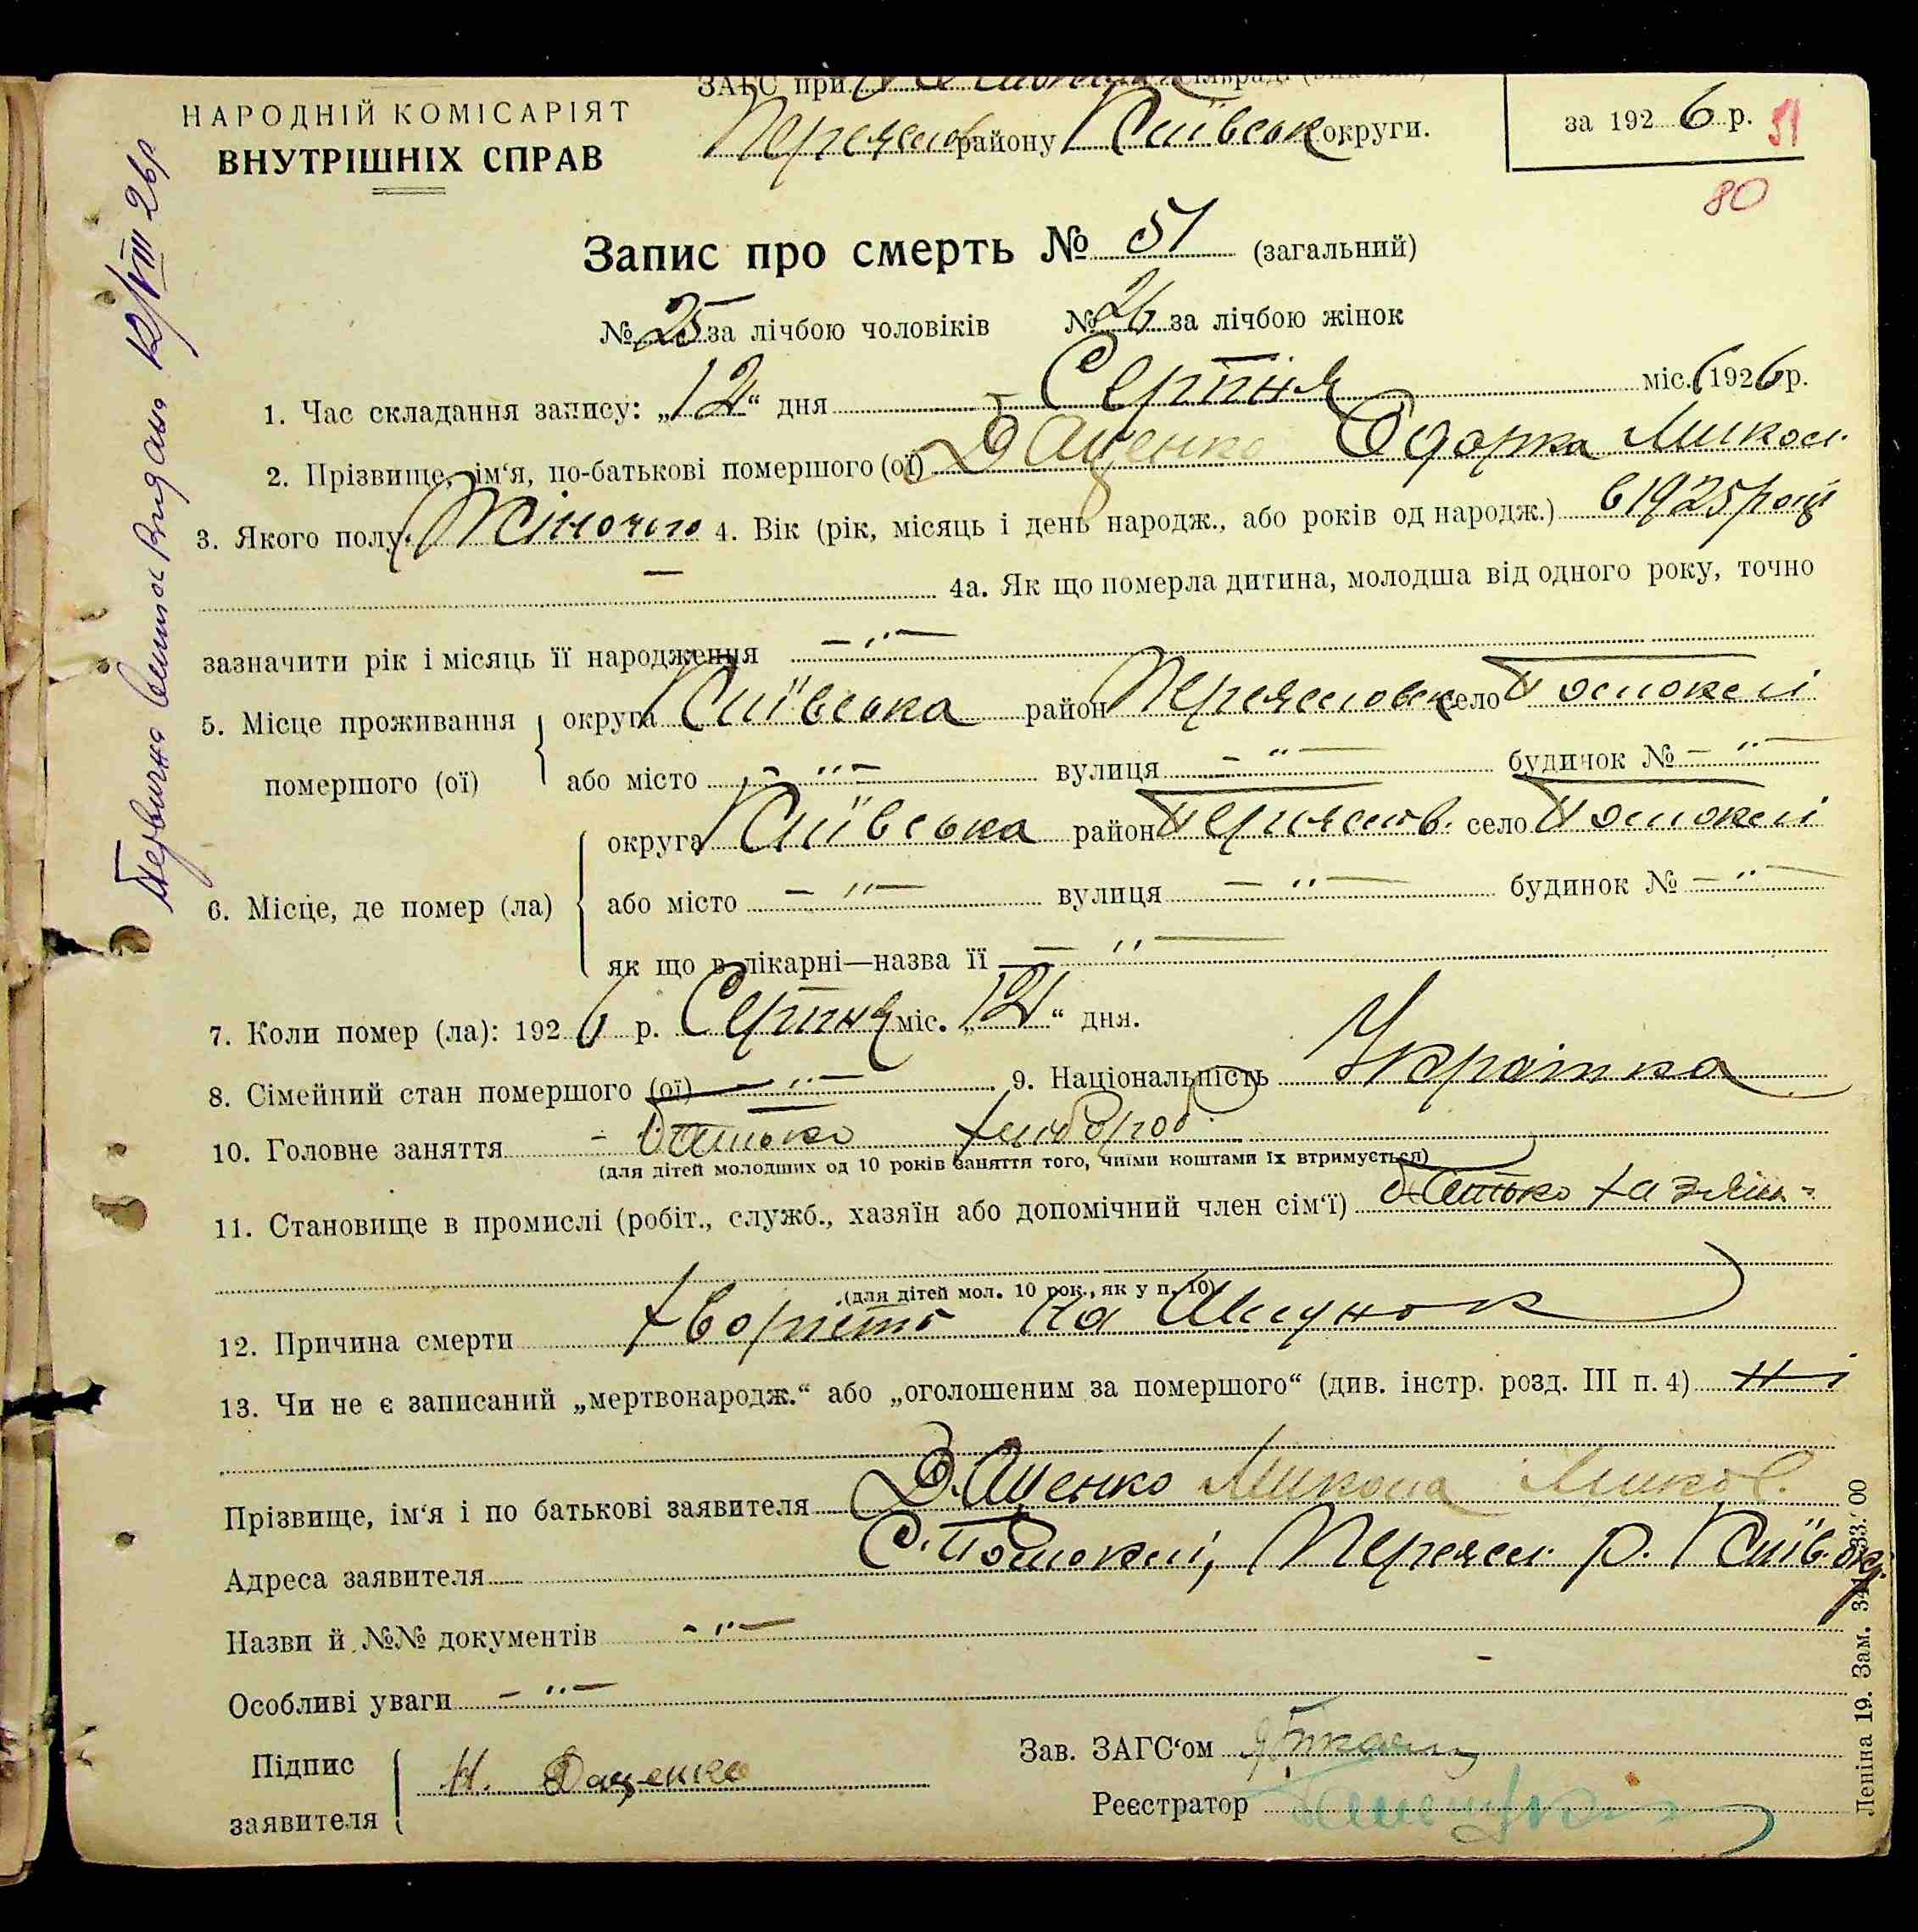 ЗАГС при сільраді
НАРОДНІЙ КОМІСАРІЯТ
ВНУТРІШНІХ СПРАВ
Переяслов району Київськ округи.
за 1926 р. 51
80
Запис про смерть № 51 (загальний)
№ 25 за лічбою чоловіків № 26 за лічбою жінок
1. Час складання запису: „12“ дня Серпня міс. 1926 р.
2. Прізвище, ім‘я, по-батькові помершого (ої) Даценко Одарка Микол.
3. Якого полу Жіночого 4. Вік (рік, місяць і день народж., або років од народж.) в 1925 році
4а. Як що померла дитина, молодша від одного року, точно
зазначити рік і місяць її народження - " -
5. Місце проживання помершого (ої) округа Київська район Переясловск село Помоклі
або місто - " - вулиця - " - будинок № - " -
6. Місце, де помер (ла) округа Київська район Переяслов. село Помоклі
або місто - " - вулиця - " - будинок № - " -
як що в лікарні—назва її - " -
7. Коли помер (ла): 1926 р. Серпня міс. „12“ дня.
8. Сімейний стан помершого (ої) - " - 9. Національність Українка
10. Головне заняття - батько хлібороб
(для дітей молодших од 10 років заняття того, чиїми коштами їх втримується)
11. Становище в промислі (робіт., служб., хазяїн або допомічний член сім‘ї) батько хазяїн
(для дітей мол. 10 рок., як у п. 10)
12. Причина смерти хворіла на шлунок
13. Чи не є записаний „мертвонародж.“ або „оголошеним за помершого“ (див. інстр. розд. III п. 4) Ні
Прізвище, ім‘я і по батькові заявителя Даценко Микола Микол.
Адреса заявителя С. Помоклі, Переясл. р. Київ. окр.
Назви й №№ документів - " -
Особливі уваги - " -
Підпис заявителя М. Даценко
Зав. ЗАГС‘ом
Реєстратор
Леніна 19. Зам.